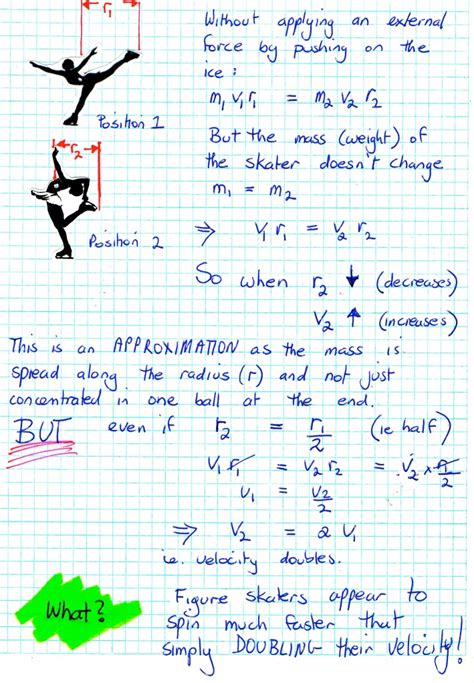 r₁
Without applying an external
force by pushing on the
ice :
m₁ v₁ r₁ = m₂ v₂ r₂
Position 1
But the mass (weight) of
the skater doesn't change
m₁ = m₂
r₂
Position 2
⇒ v₁ r₁ = v₂ r₂
So when r₂ ↓ (decreases)
V₂ ↑ (increases)
This is an APPROXIMATION as the mass is
spread along the radius (r) and not just
concentrated in one ball at the end.
BUT even if r₂ = r₁/2 (ie half)
V₁ r₁ = V₂ r₂ = V₂ × r₁/2
v₁ = v₂/2
⇒ V₂ = 2 v₁
i.e. velocity doubles.
What?
Figure skaters appear to
spin much faster that
simply DOUBLING their velocity!